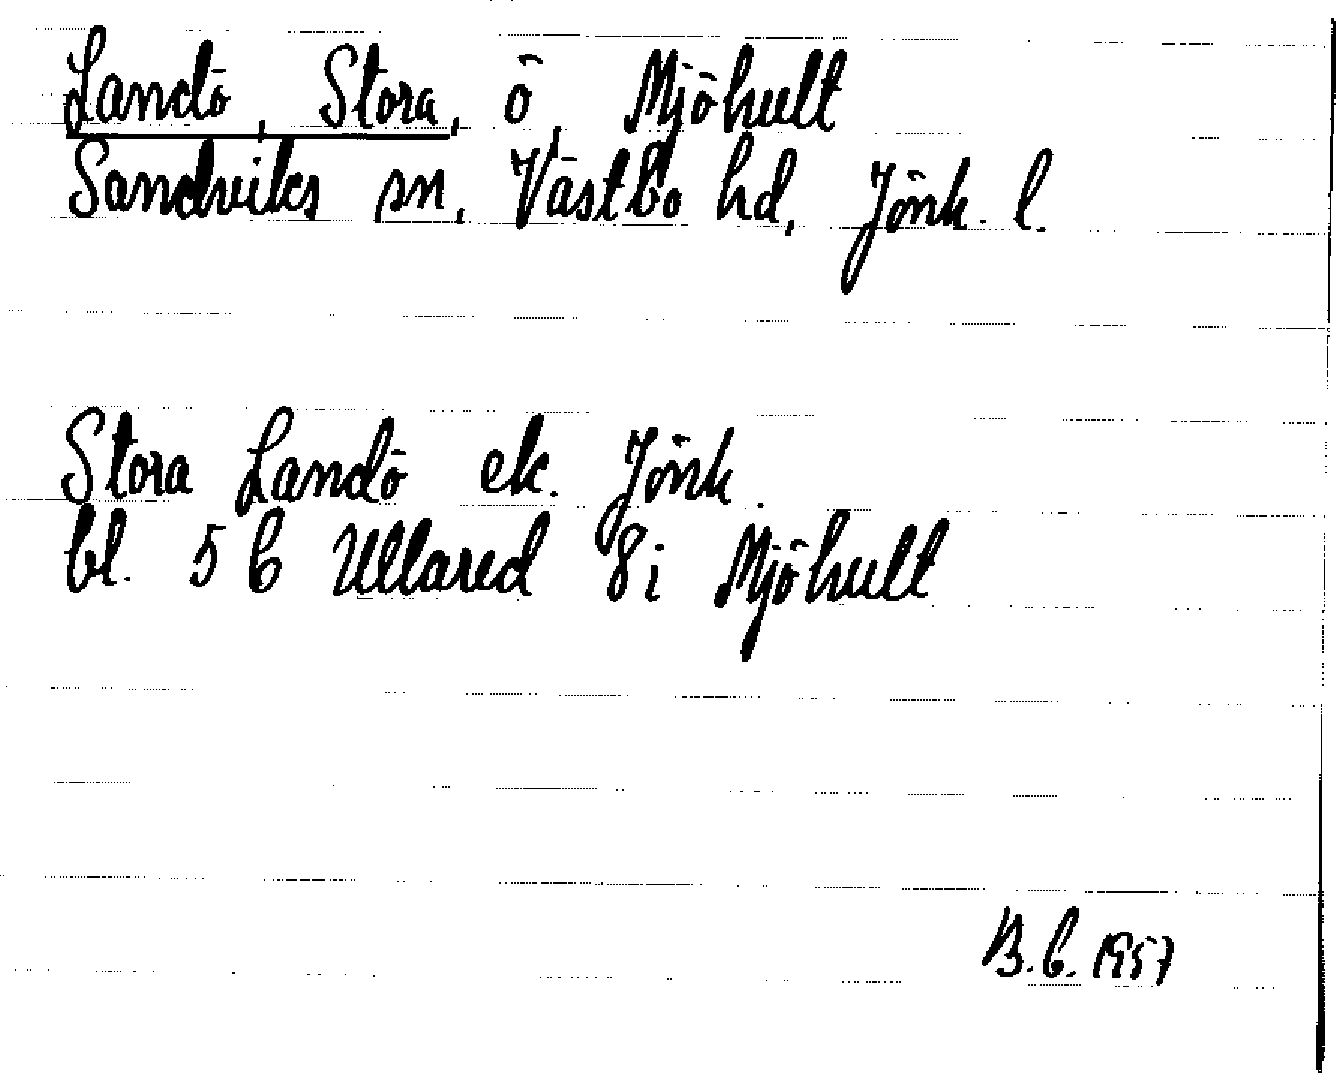 Landö, Stora, ö, Mjöhult
Sandviks sn, Västbo hd, Jönk. l.
Stora Landö ek. Jönk.
bl. 5 C Ullared 8i Mjöhult
B.C. 1957